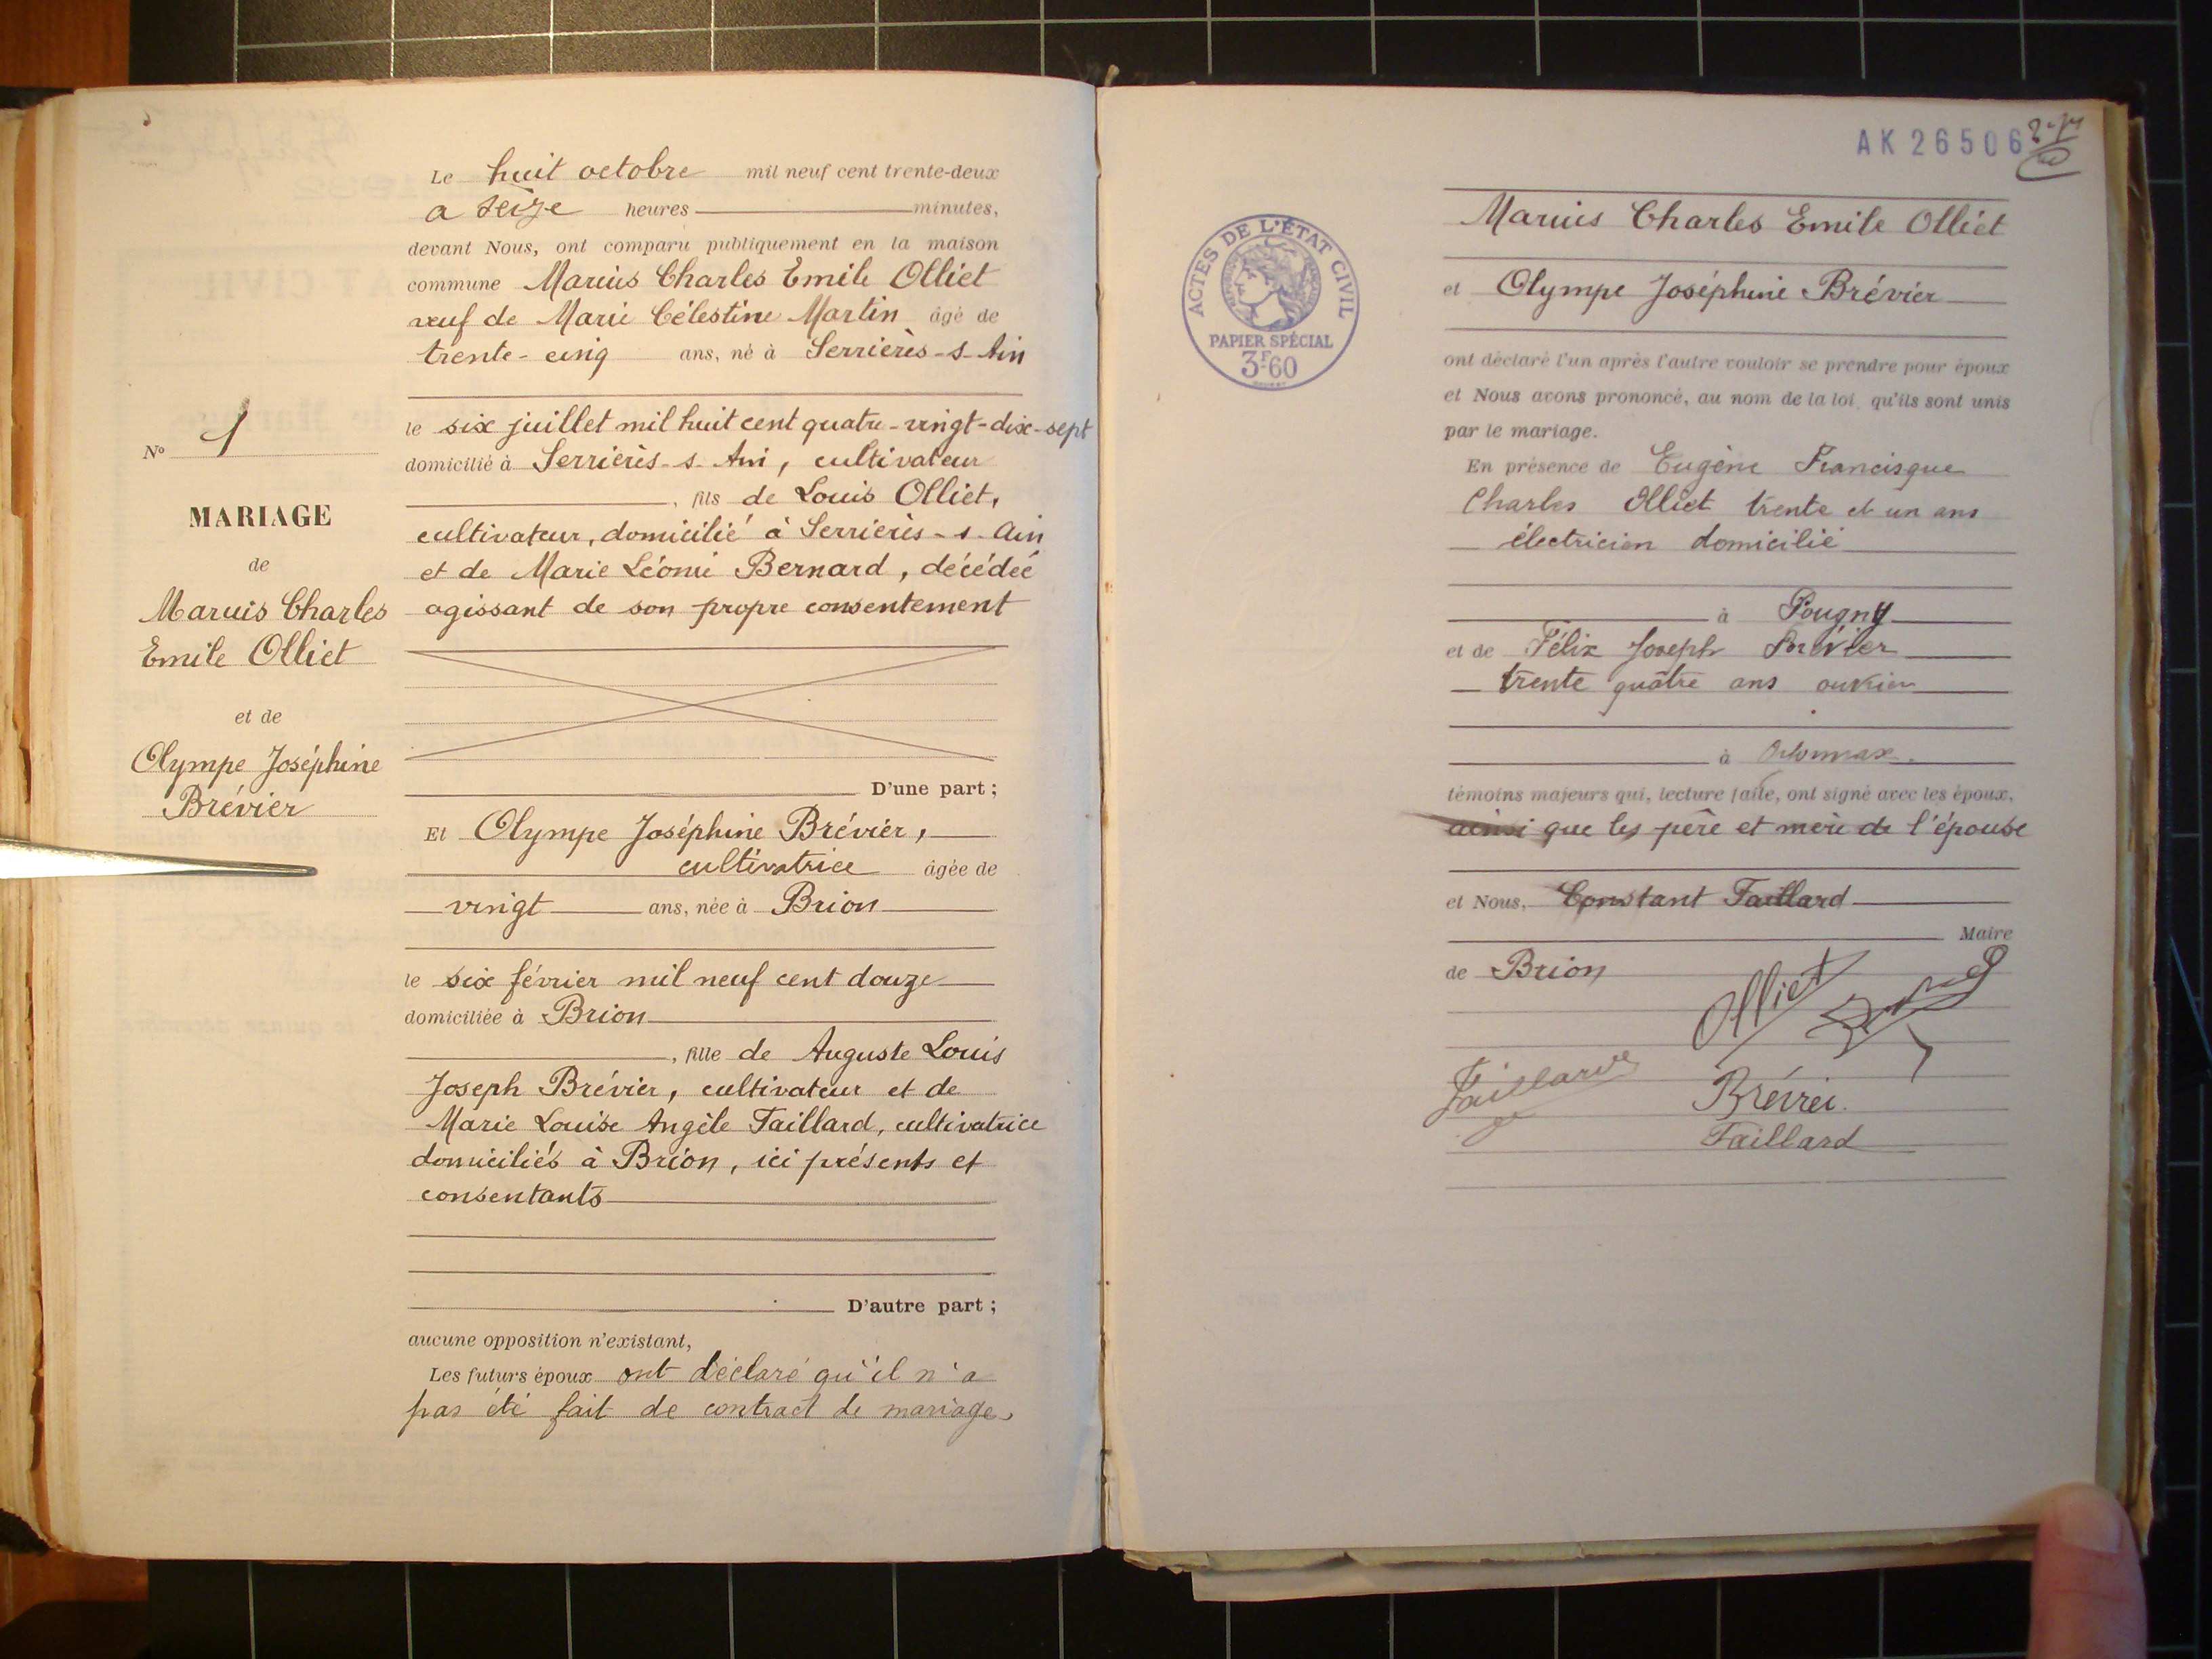 Le huit octobre mil neuf cent trente-deux
a seize heures minutes,
devant Nous, ont comparu publiquement en la maison
commune Marius Charles Emile Olliet
veuf de Marie Célestine Martin âgé de
trente-cinq ans, né à Serrières-s-Ain
le six juillet mil huit cent quatre-vingt-dix-sept
domicilié à Serrières-s-Ain, cultivateur
, fils de Louis Olliet,
cultivateur, domicilié à Serrières-s-Ain
et de Marie Léonie Bernard, décédée
agissant de son propre consentement
D'une part ;
Et Olympe Joséphine Brévier,
cultivatrice âgée de
vingt ans, née à Brion
le six février mil neuf cent douze
domiciliée à Brion
, fille de Auguste Louis
Joseph Brévier, cultivateur et de
Marie Louise Angèle Taillard, cultivatrice
domiciliés à Brion, ici présents et
consentants
D'autre part ;
aucune opposition n'existant,
Les futurs époux ont déclaré qu'il n'a
pas été fait de contract de mariage,
No 1
MARIAGE
de
Marius Charles
Emile Olliet
et de
Olympe Joséphine
Brévier
AK 26506
ACTES DE L'ÉTAT CIVIL
PAPIER SPÉCIAL
3F60
Marius Charles Emile Olliet
et Olympe Joséphine Brévier
ont déclaré l'un après l'autre vouloir se prendre pour époux
et Nous avons prononcé, au nom de la loi, qu'ils sont unis
par le mariage.
En présence de Eugène Francisque
Charles Olliet trente et un ans
électricien domicilié
à Pougny
et de Félix Joseph Brévier
trente quatre ans ouvrier
à Oyonnax.
témoins majeurs qui, lecture faite, ont signé avec les époux,
ainsi que les père et mère de l'épouse
et Nous, Constant Taillard
Maire
de Brion
Olliet
Taillard
Brévier
Taillard